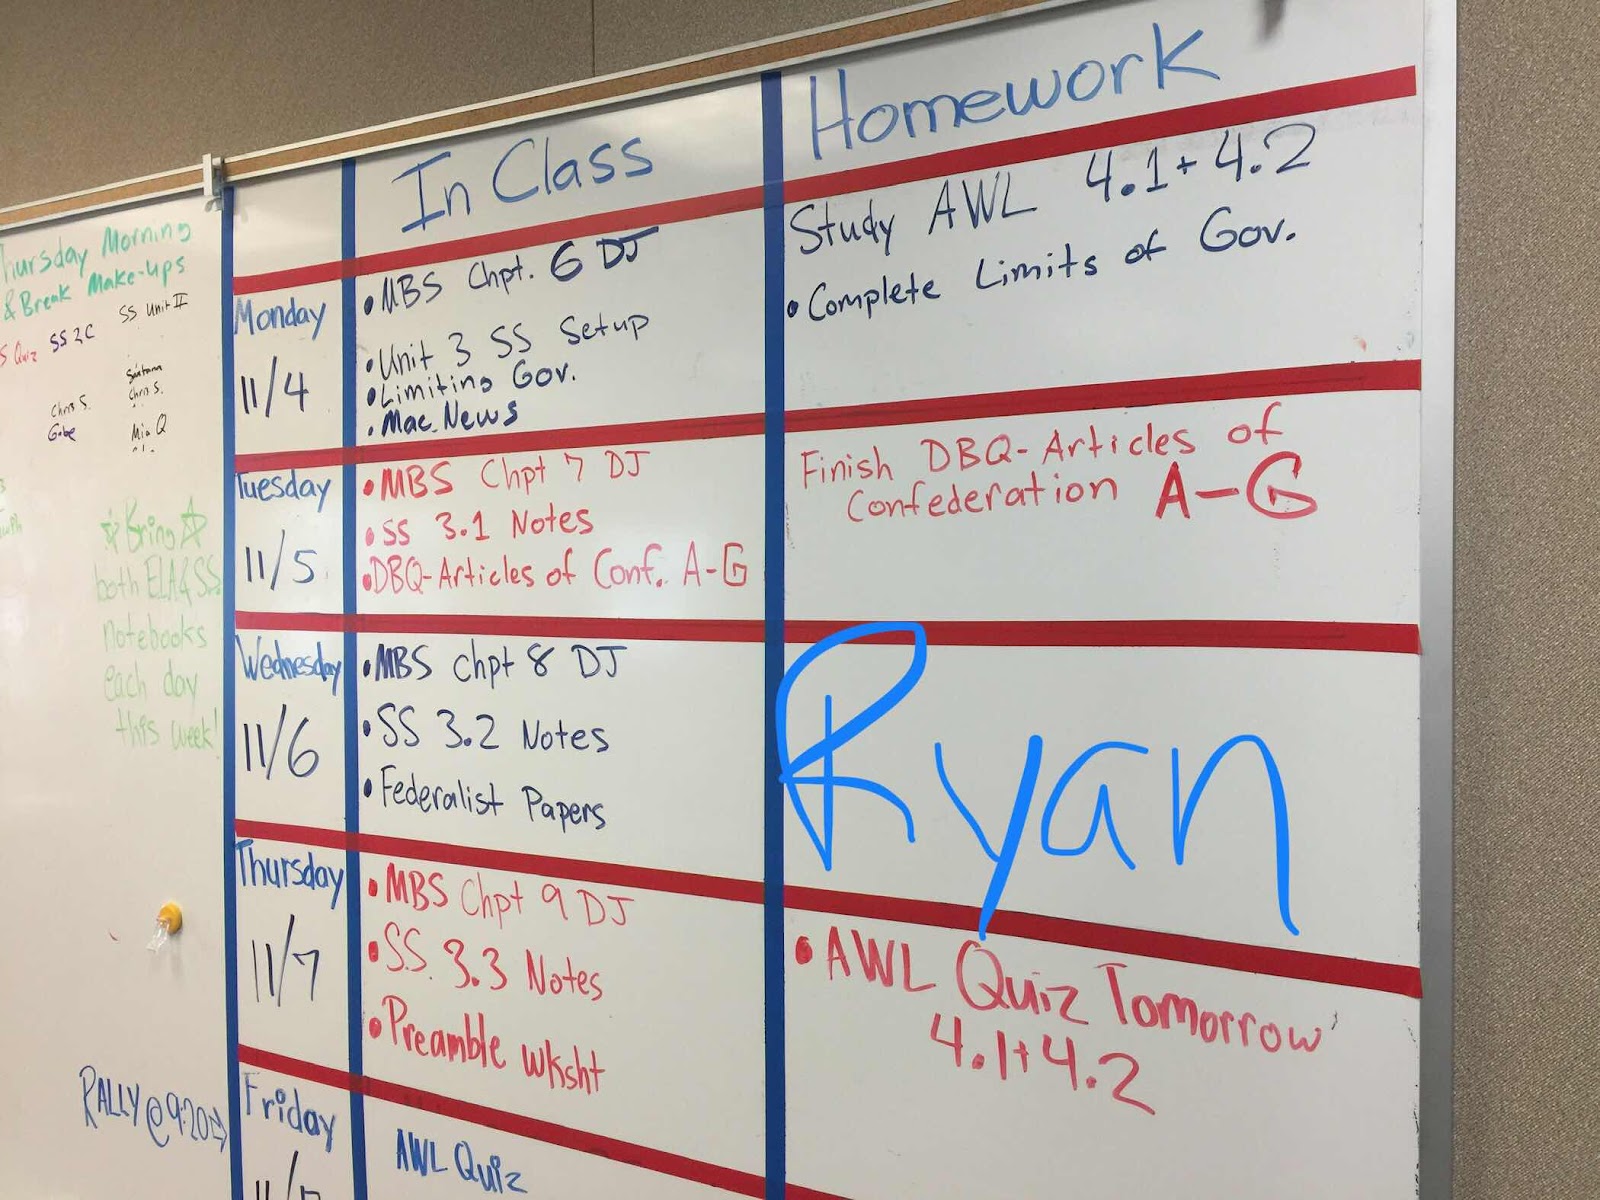 In Class
Homework
Monday
11/4
• MBS Chpt. 6 DJ
• Unit 3 SS Setup
• Limiting Gov.
• Mac News
Study AWL 4.1 + 4.2
• Complete Limits of Gov.
Tuesday
11/5
• MBS Chpt 7 DJ
• SS 3.1 Notes
• DBQ-Articles of Conf. A-G
Finish DBQ-Articles of
Confederation A-G
Wednesday
11/6
• MBS Chpt 8 DJ
• SS 3.2 Notes
• Federalist Papers
Ryan
Thursday
11/7
• MBS Chpt 9 DJ
• S.S. 3.3 Notes
• Preamble wksht
• AWL Quiz Tomorrow
4.1 + 4.2
Friday
AWL Quiz
Thursday Morning
& Break Make-ups
Quiz
SS 2C
SS Unit II
Chris S.
Gabe
Chris S.
Mia Q
☆ Bring ☆
both ELA & SS
notebooks
each day
this week!
RALLY @ 9:20 →